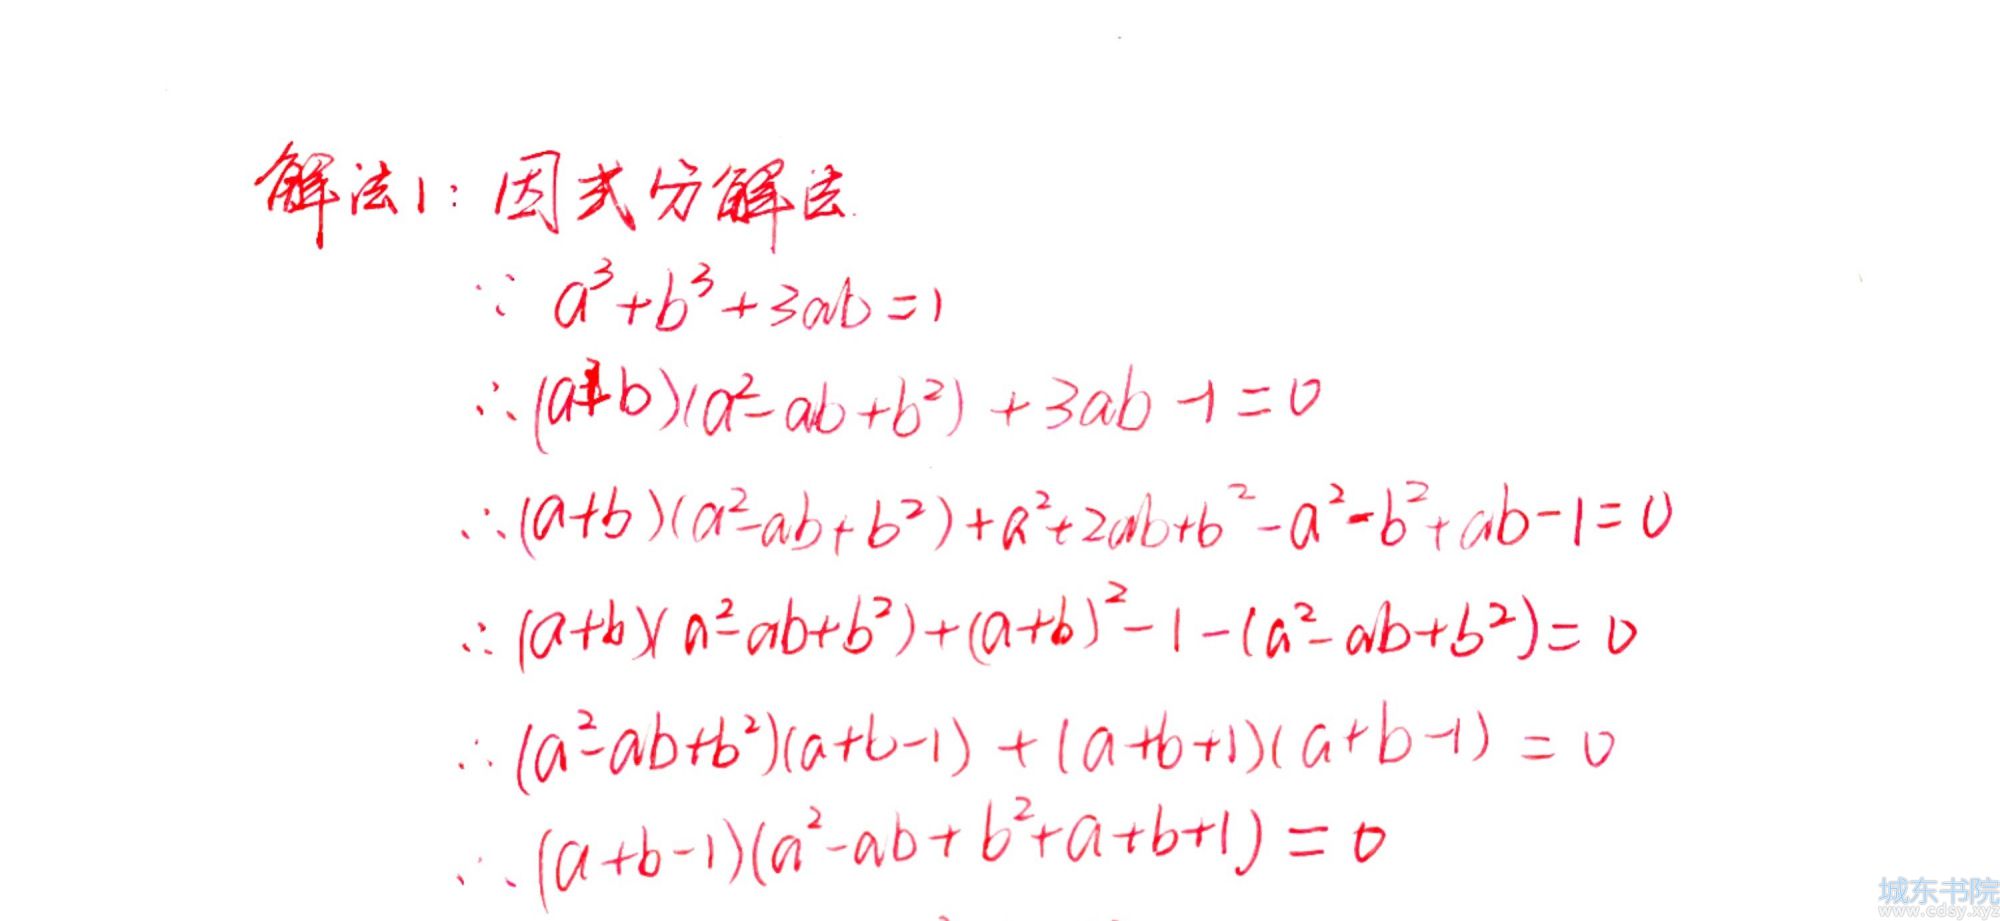 解法1：因式分解法.
∵ a³+b³+3ab=1
∴(a+b)(a²-ab+b²)+3ab-1=0
∴(a+b)(a²-ab+b²)+a²+2ab+b²-a²-b²+ab-1=0
∴(a+b)(a²-ab+b²)+(a+b)²-1-(a²-ab+b²)=0
∴(a²-ab+b²)(a+b-1)+(a+b+1)(a+b-1)=0
∴(a+b-1)(a²-ab+b²+a+b+1)=0
城东书院
www.cdsy.xyz